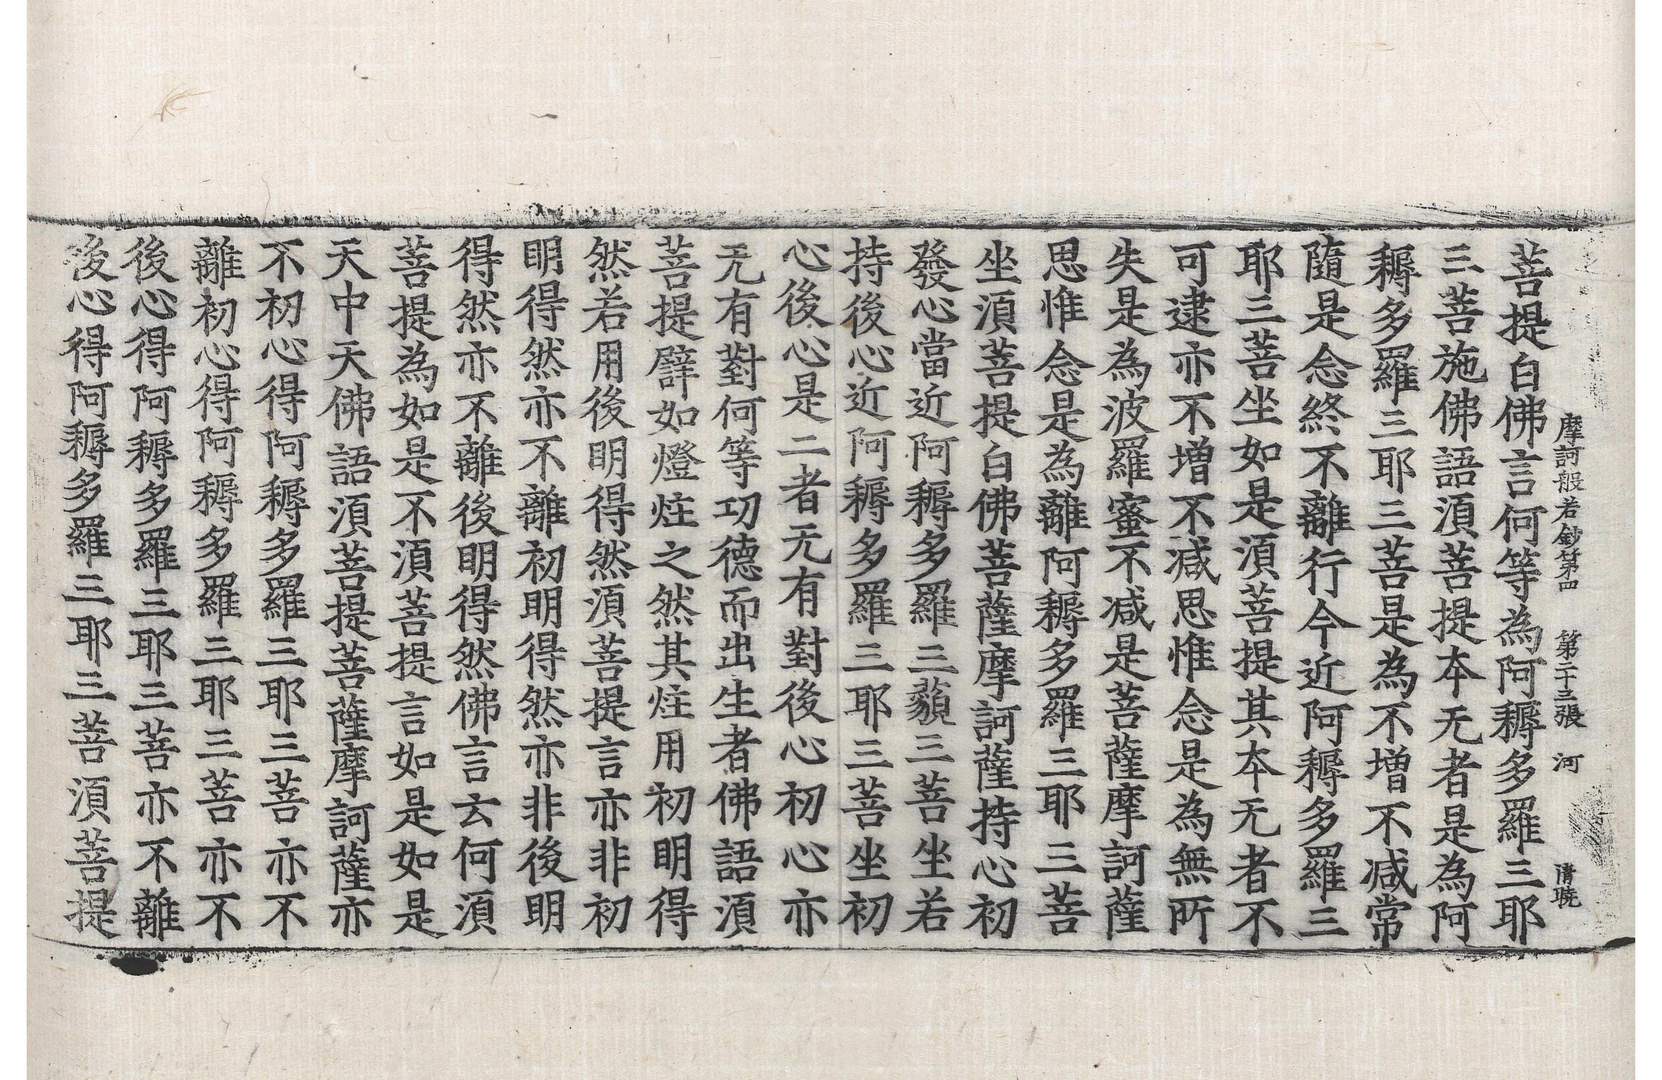 摩訶般若鈔第四　第二十三張　河　清曉
菩提白佛言何等為阿耨多羅三耶
三菩施佛語湏菩提本无者是為阿
耨多羅三耶三菩是為不增不減常
隨是念終不離行今近阿耨多羅三
耶三菩坐如是湏菩提其本无者不
可逮亦不增不減思惟念是為無所
失是為波羅蜜不減是菩薩摩訶薩
思惟念是為離阿耨多羅三耶三菩
坐湏菩提白佛菩薩摩訶薩持心初
發心當近阿耨多羅三藐三菩坐若
持後心近阿耨多羅三耶三菩坐初
心後心是二者无有對後心初心亦
无有對何等功德而出生者佛語湏
菩提譬如燈炷之然其炷用初明得
然若用後明得然湏菩提言亦非初
明得然亦不離初明得然亦非後明
得然亦不離後明得然佛言云何湏
菩提為如是不湏菩提言如是如是
天中天佛語湏菩提菩薩摩訶薩亦
不初心得阿耨多羅三耶三菩亦不
離初心得阿耨多羅三耶三菩亦不
後心得阿耨多羅三耶三菩亦不離
後心得阿耨多羅三耶三菩湏菩提